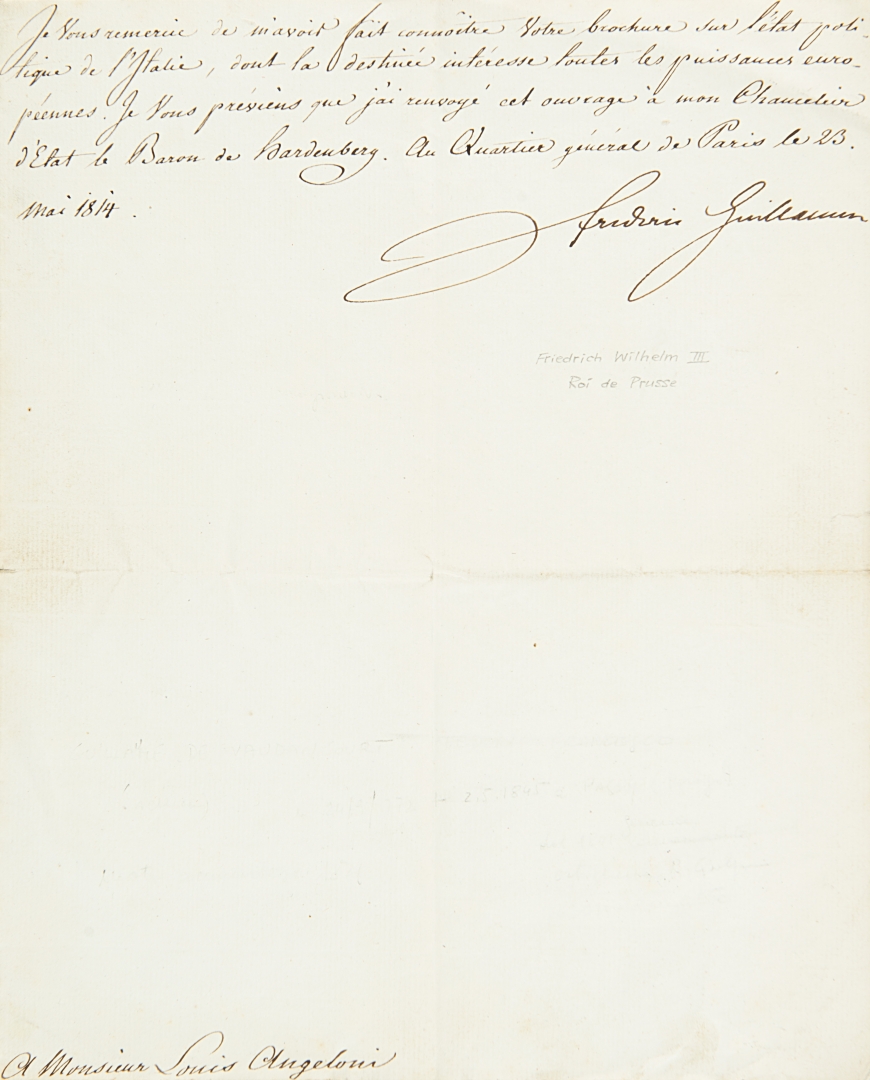 Je Vous remercie de m'avoir fait connoître Votre brochure sur l'état poli-
tique de l'Italie, dont la destinée intéresse toutes les puissances euro-
péennes. Je Vous préviens que j'ai renvoyé cet ouvrage à mon Chancelier
d'Etat le Baron de Hardenberg. Au Quartier général de Paris le 23.
Mai 1814.
Frédéric Guillaume
Friedrich Wilhelm III
Roi de Prusse
A Monsieur Louis Angeloni